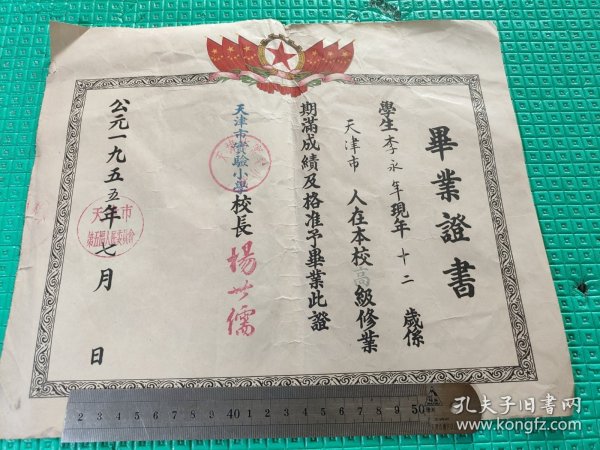 畢業證書
學生李永年現年十二歲係
天津市人在本校高級修業
期滿成績及格准予畢業此證
天津市實驗小學校長楊世儒
公元一九五五年七月 日
2 3 4 5 6 7 8 9 40 1 2 3 4 5 6 7 8 9 50
孔夫子旧书网
www.kongfz.com